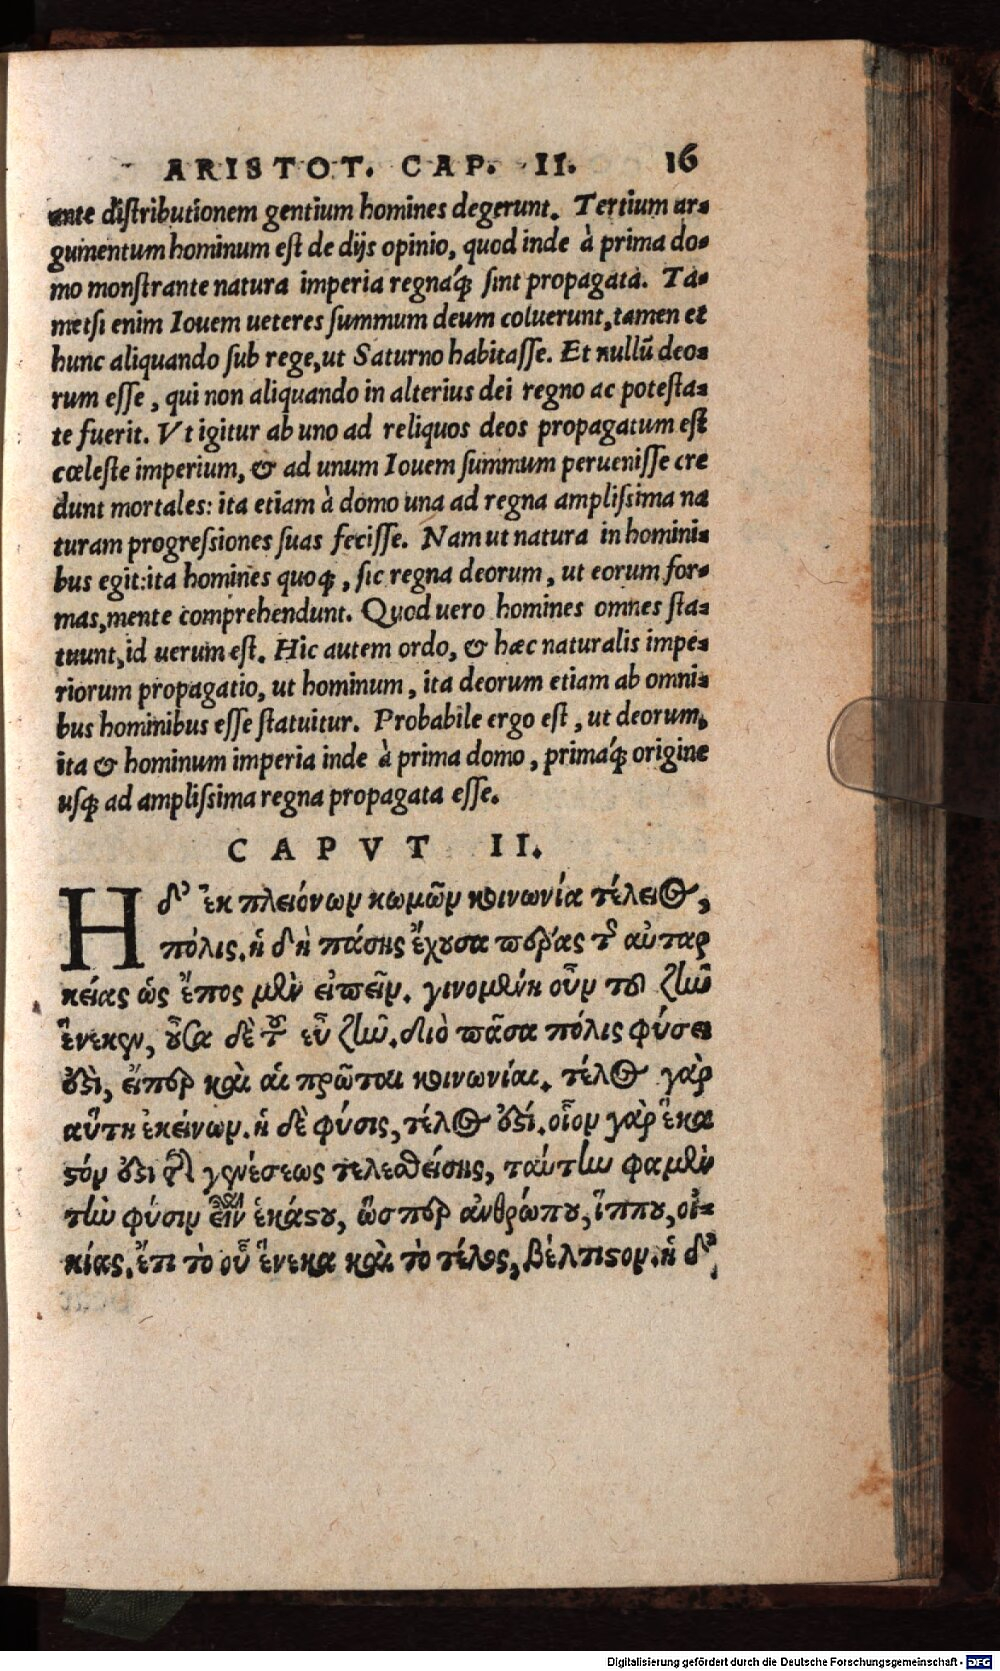 ARISTOT. CAP. II. 16
ante distributionem gentium homines degerunt. Tertium ar-
gumentum hominum est de dijs opinio, quod inde à prima do-
mo monstrante natura imperia regnaq́; sint propagata. Ta-
metsi enim Iouem ueteres summum deum coluerunt, tamen et
hunc aliquando sub rege, ut Saturno habitasse. Et nullũ deo-
rum esse, qui non aliquando in alterius dei regno ac potesta-
te fuerit. Vt igitur ab uno ad reliquos deos propagatum est
cœleste imperium, & ad unum Iouem summum peruenisse cre
dunt mortales: ita etiam à domo una ad regna amplissima na
turam progressiones suas fecisse. Nam ut natura in homini-
bus egit: ita homines quoq;, sic regna deorum, ut eorum for-
mas, mente comprehendunt. Quod uero homines omnes sta-
tuunt, id uerum est. Hic autem ordo, & hæc naturalis impe-
riorum propagatio, ut hominum, ita deorum etiam ab omni-
bus hominibus esse statuitur. Probabile ergo est, ut deorum,
ita & hominum imperia inde à prima domo, primaq́; origine
usq; ad amplissima regna propagata esse.
CAPVT II.
Η δ’ ἐκ πλειόνων κωμῶν κοινωνία τέλειος,
πόλις. ἡ δὴ πάσης ἔχουσα πέρας τῆς αὐταρ
κείας ὡς ἔπος μὲν εἰπεῖν. γινομένη οὖν τοῦ ζῆν
ἕνεκεν, οὖσα δὲ τοῦ εὖ ζῆν. διὸ πᾶσα πόλις φύσει
ἐστὶ, εἴπερ καὶ αἱ πρῶται κοινωνίαι. τέλος γὰρ
αὕτη ἐκείνων. ἡ δὲ φύσις, τέλος ἐστί. οἷον γὰρ ἕκα
στόν ἐστι τῆς γενέσεως τελεσθείσης, ταύτην φαμὲν
τὴν φύσιν εἶναι ἑκάστου, ὥσπερ ἀνθρώπου, ἵππου, οἰ-
κίας. ἔτι τὸ οὗ ἕνεκα καὶ τὸ τέλος, βέλτιστον. ἡ δ’
Digitalisierung gefördert durch die Deutsche Forschungsgemeinschaft - DFG